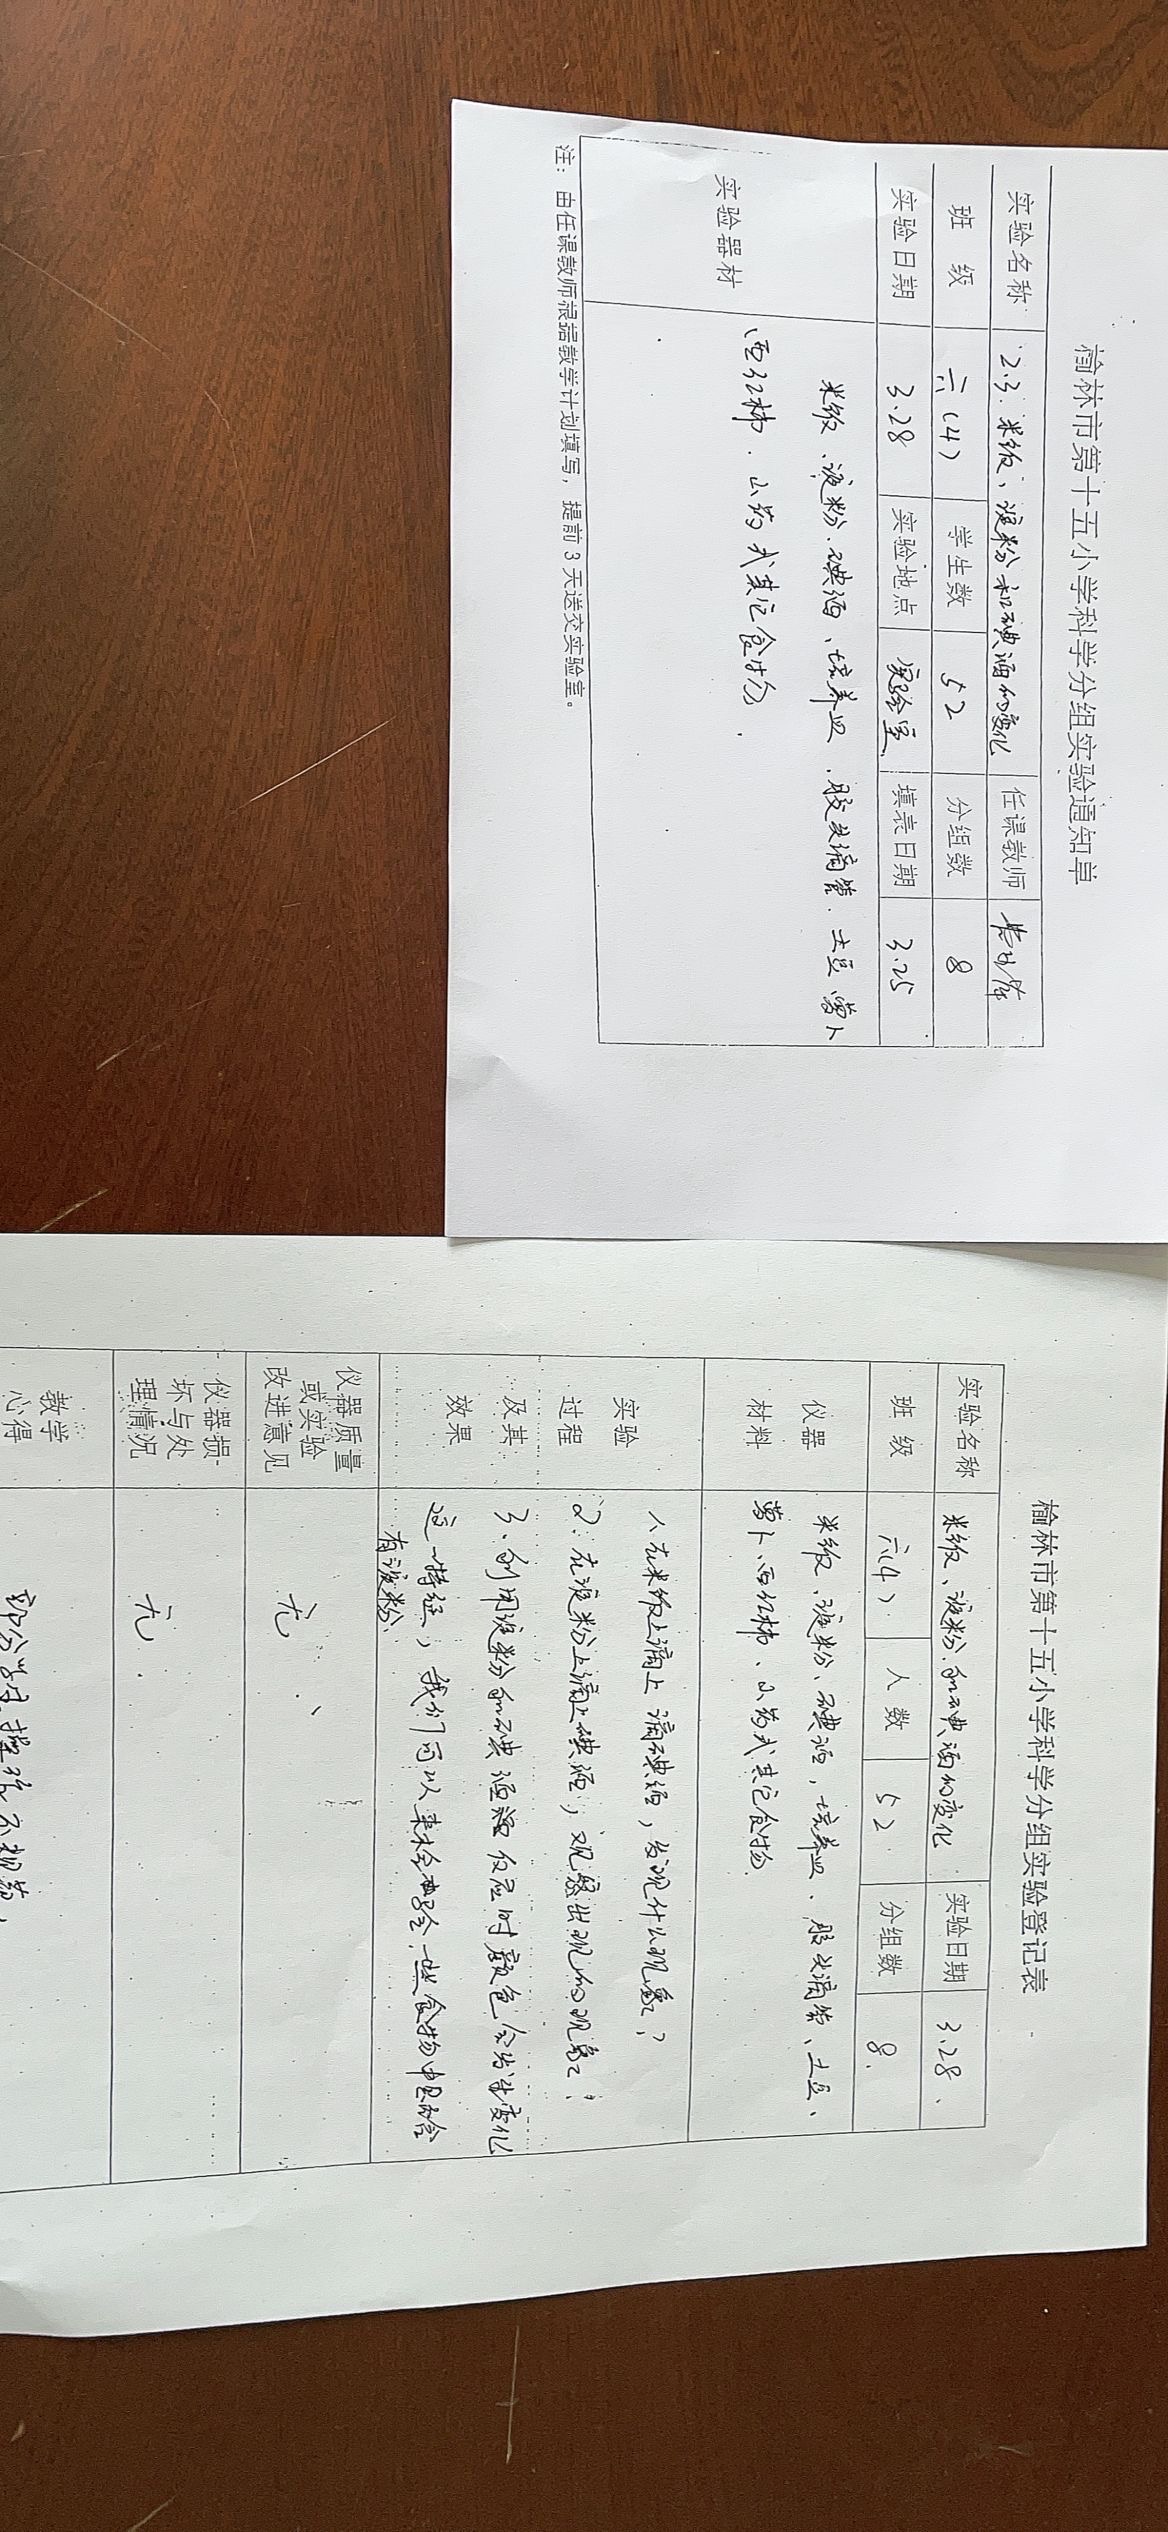 榆林市第十五小学科学分组实验通知单
实验名称 2.3.米饭、淀粉和碘酒的变化 任课教师
班 级 六(4) 学生数 52 分组数 8
实验日期 3.28 实验地点 实验室. 填表日期 3.25
实验器材
米饭、淀粉、碘酒、培养皿、胶头滴管、土豆、萝卜
、西红柿、山药或其它食物.
注：由任课教师根据教学计划填写，提前 3 天送交实验室。
榆林市第十五小学科学分组实验登记表
实验名称 米饭、淀粉和碘酒的变化 实验日期 3.28.
班 级 六(4) 人 数 52 分组数 8.
仪器
材料
米饭、淀粉、碘酒，培养皿、胶头滴管、土豆、
萝卜、西红柿、山药或其它食物
实验
过程
及其
效果
1、在米饭上滴上滴碘酒，发现什么现象？
2：在淀粉上滴上碘酒，观察出现的现象；
3、利用淀粉和碘酒反应时颜色会发生变化
这一特征，我们可以来检验一些食物中是否含
有淀粉.
仪器质量
或实验
改进意见
无
仪器损
坏与处
理情况
无.
教学
心得
部分学生操作不规范，